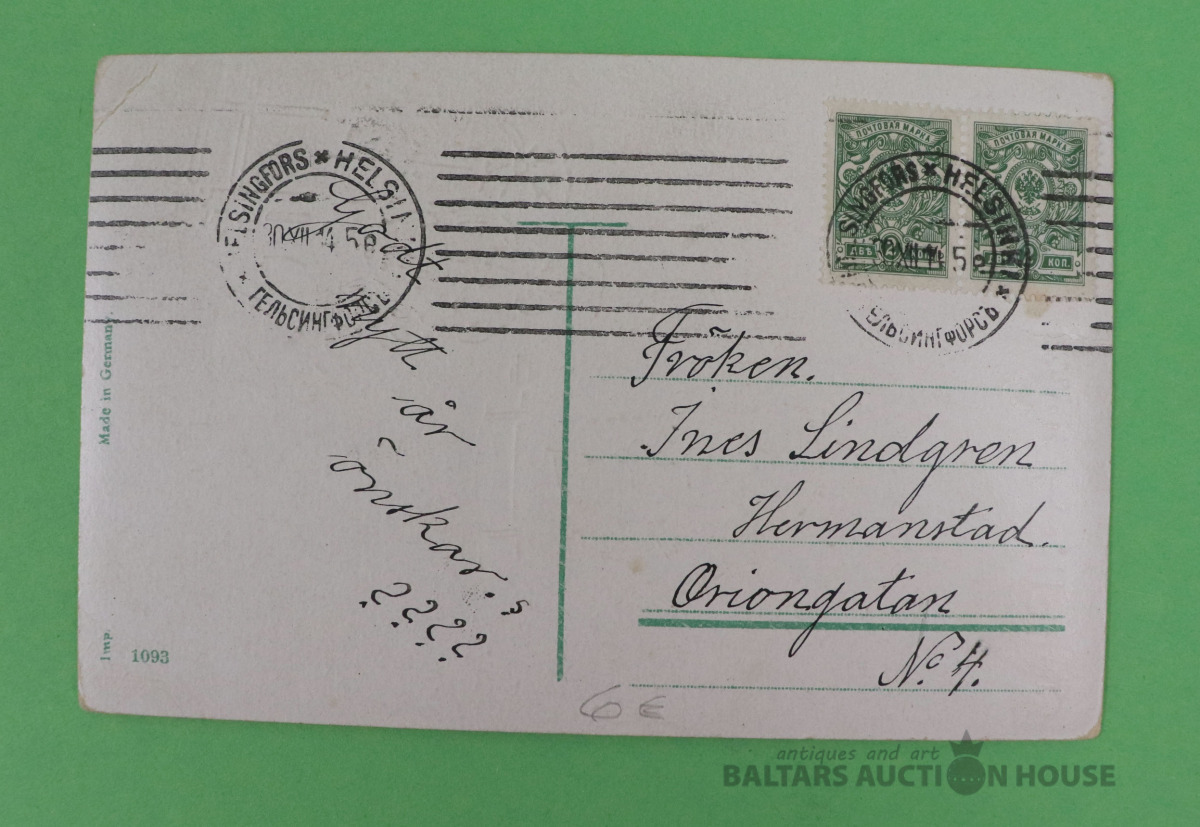 HELSINGFORS * HELSINKI
30 XII 14 5
ГЕЛЬСИНГФОРСЪ
ПОЧТОВАЯ МАРКА
ПОЧТОВАЯ МАРКА
ДВѢ
КОП.
HELSINGFORS * HELSINKI
XII 14 5
ГЕЛЬСИНГФОРСЪ
Godt
Nytt
år
önskar.?
????
Made in Germany.
Imp.
1093
Fröken.
Ines Lindgren
Hermanstad.
Oriongatan
No. 4.
6 €
antiques and art
BALTARS AUCTION HOUSE